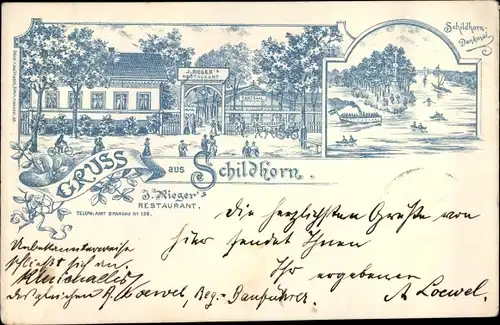 Schildhorn-
Denkmal.
J. RIEGER'S
RESTAURANT
TANZSAAL
GRUSS
aus Schildhorn.
J. Rieger's
RESTAURANT.
TELEPH: AMT SPANDAU Nº 138.
Die herzlichsten Grüße von
hier sendet Ihnen
Ihr ergebener
A Loewel.
Unbekannterweise
schließt sich an:
desgleichen R. Loewel, Reg-Bauführer.